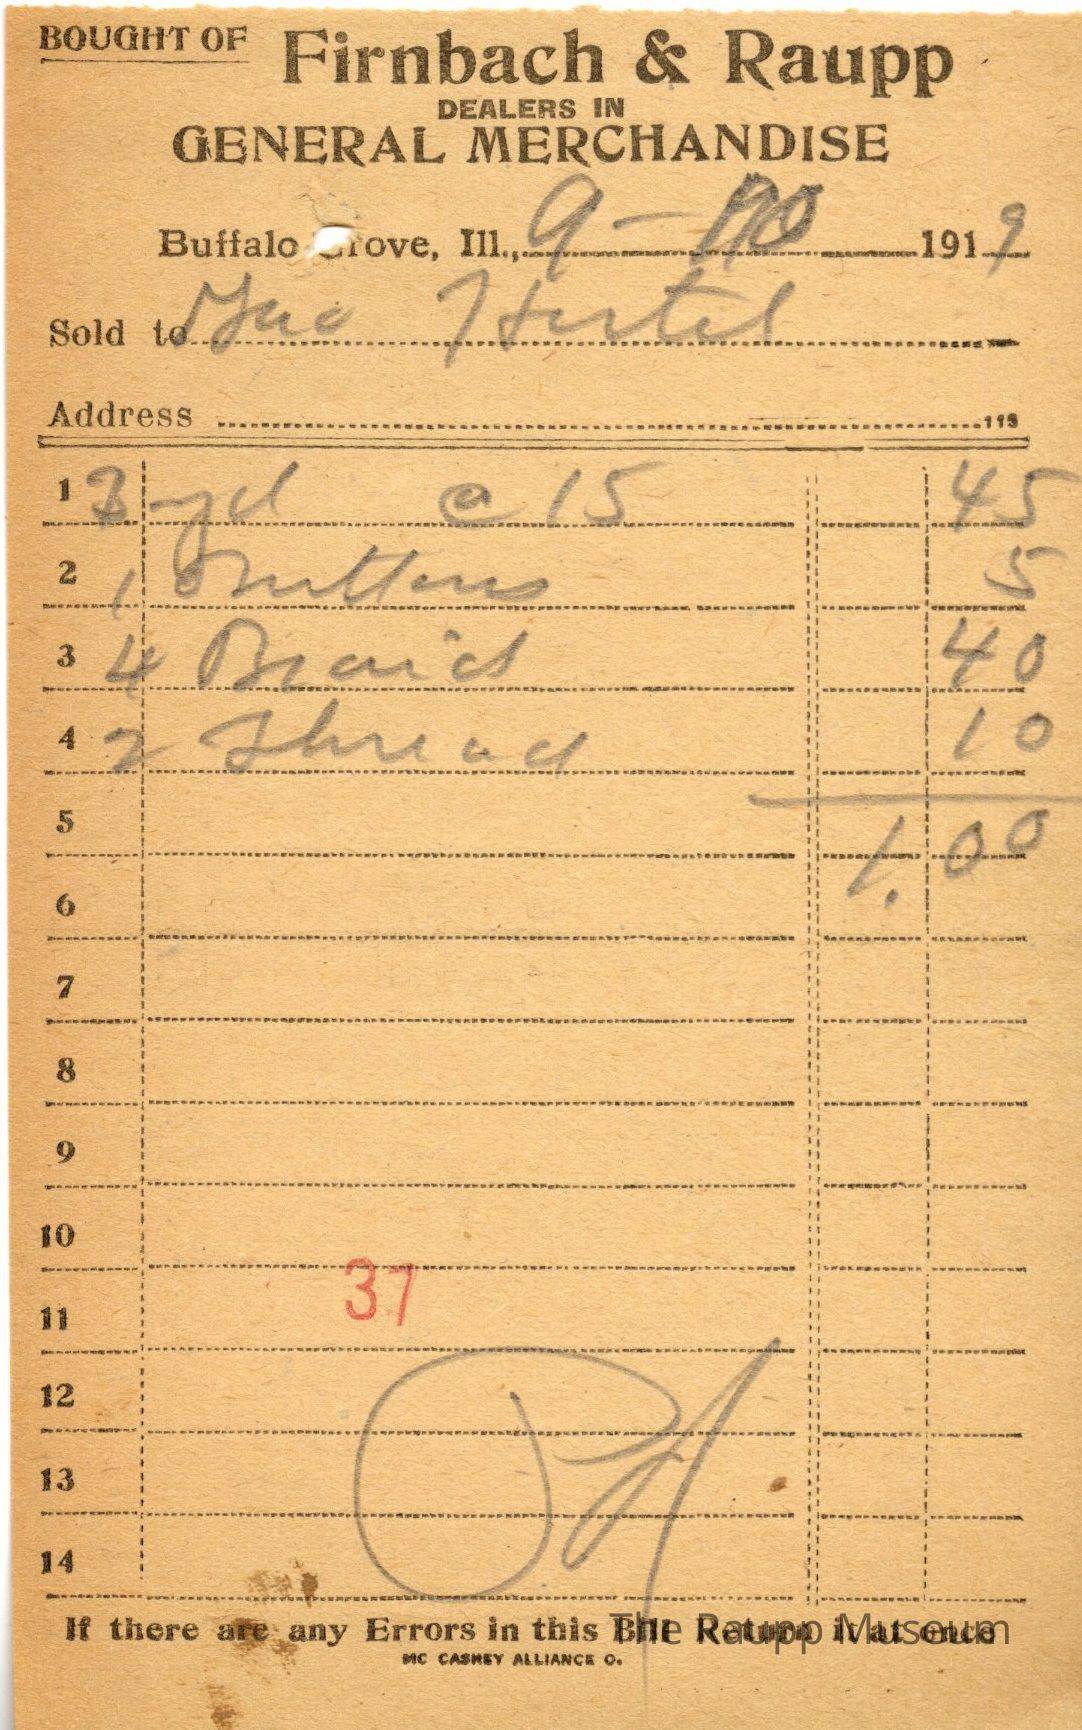 BOUGHT OF Firnbach & Raupp
DEALERS IN
GENERAL MERCHANDISE
Buffalo Grove, Ill., 9 - 1919
Sold to Hertel
Address 119
1 3 yd @ 15 45
2 1 Buttons 5
3 4 Braid 40
4 2 Thread 10
5 1.00
6
7
8
9
10
37
11
12
13
14
If there are any Errors in this Bill Return it at once
The Raupp Museum
MC CASKEY ALLIANCE O.